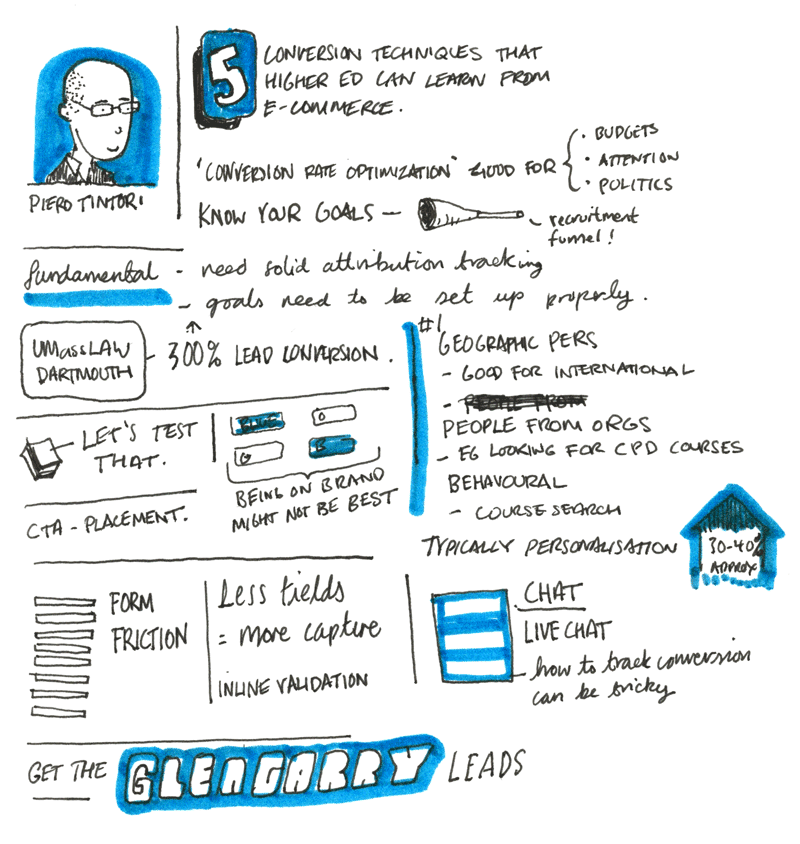 5
CONVERSION TECHNIQUES THAT
HIGHER ED CAN LEARN FROM
E-COMMERCE.
PIERO TINTORI
'CONVERSION RATE OPTIMIZATION" GOOD FOR
• BUDGETS
• ATTENTION
• POLITICS
KNOW YOUR GOALS —
recruitment
funnel!
fundamental - need solid attribution tracking
- goals need to be set up properly.
UMassLAW
DARTMOUTH
- 300% LEAD CONVERSION.
LET'S TEST
THAT.
BLUE
O
G
B
BEING ON BRAND
MIGHT NOT BE BEST
CTA - PLACEMENT.
#1
GEOGRAPHIC PERS
- GOOD FOR INTERNATIONAL
- PEOPLE FROM
PEOPLE FROM ORGS
- EG LOOKING FOR CPD COURSES
BEHAVOURAL
- COURSE SEARCH
TYPICALLY PERSONALISATION
30-40%
APPROX
FORM
FRICTION
Less fields
= more capture
INLINE VALIDATION
CHAT
LIVE CHAT
- how to track conversion
can be tricky
GET THE GLENGARRY LEADS